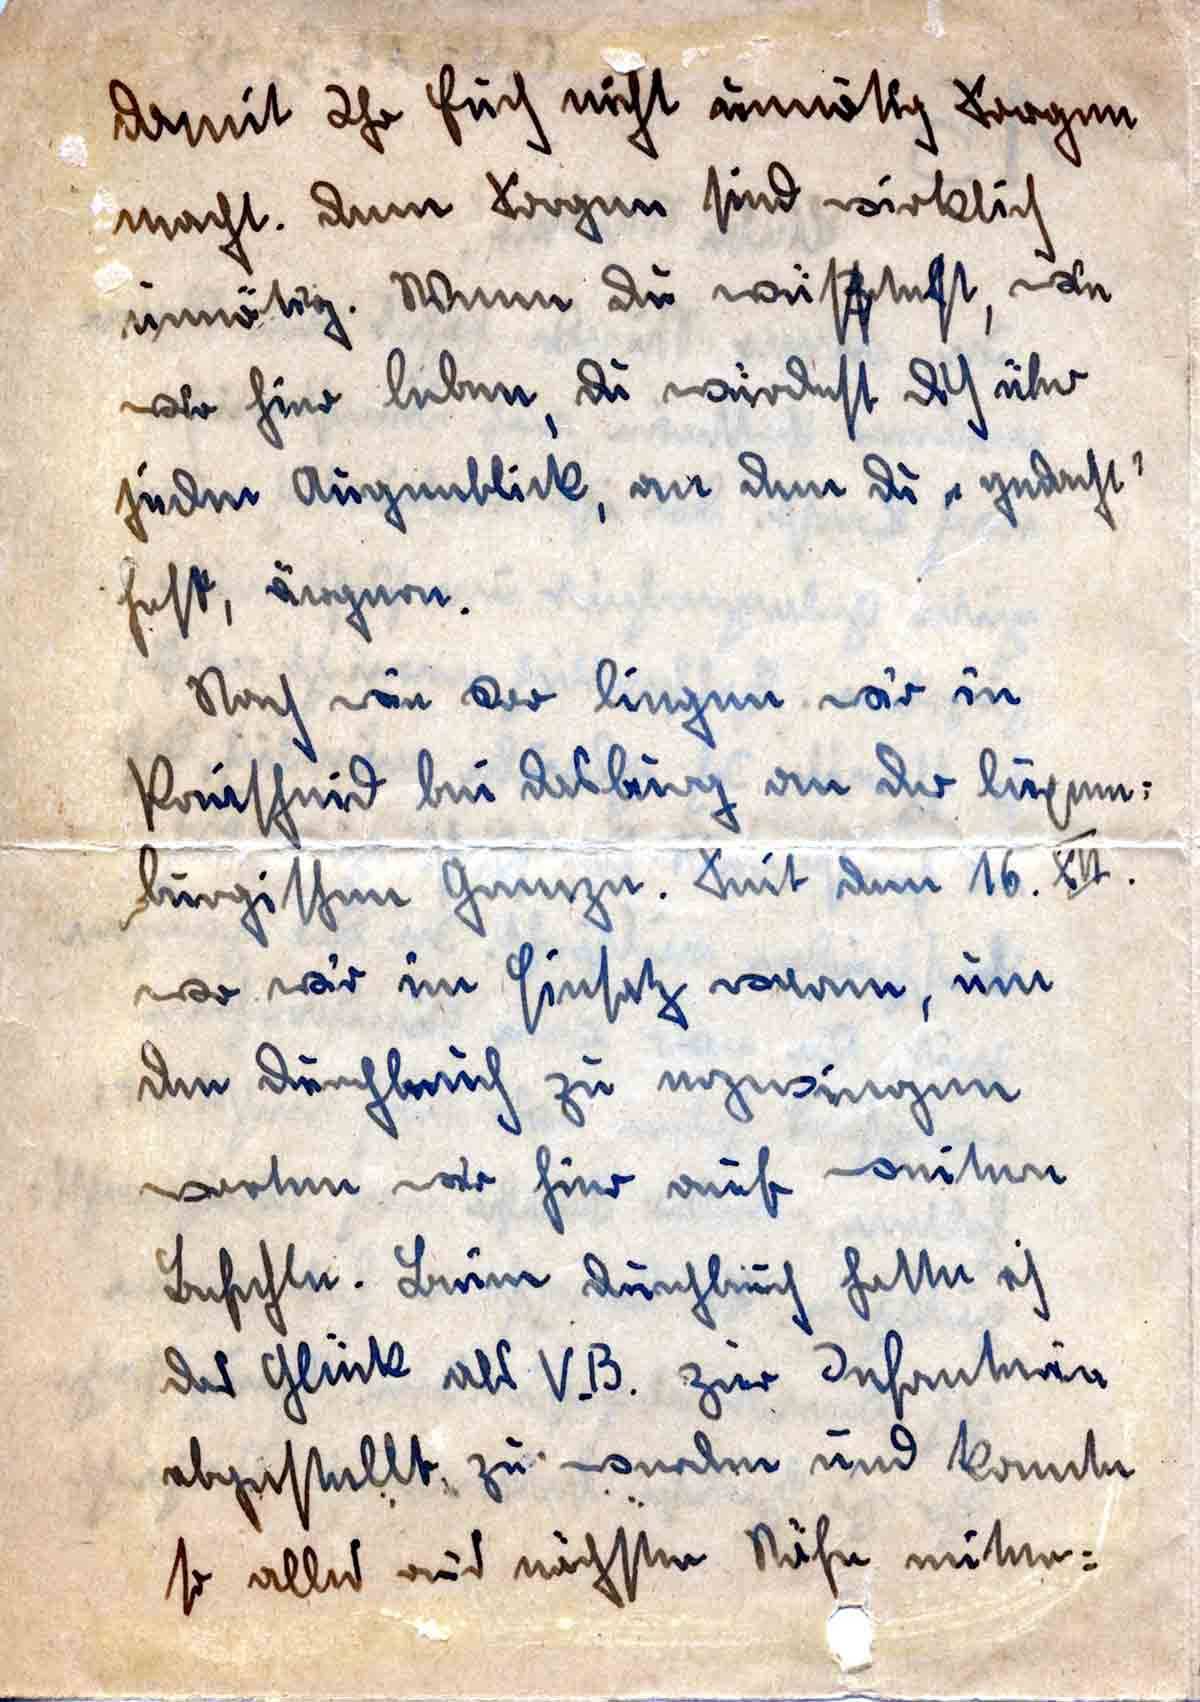 damit Ihr Euch nicht unnötig Sorgen
macht. Denn Sorgen sind wirklich
unnötig. Wenn Du wüsstest, wie
wir hier leben, Du würdest Dich über
jeden Augenblick, an dem Du „gedacht"
hast, ärgern.
Nach wie vor liegen wir in
bei Dasburg an der luxem=
burgischen Grenze. Seit dem 16. XII.
wo wir im Einsatz waren, um
den Durchbruch zu erzwingen
warten wir hier auf weitere
Befehle. Beim Durchbruch hatte ich
das Glück als V.B. zur Infanterie
abgestellt zu werden und konnte
so alles aus nächster Nähe miter=